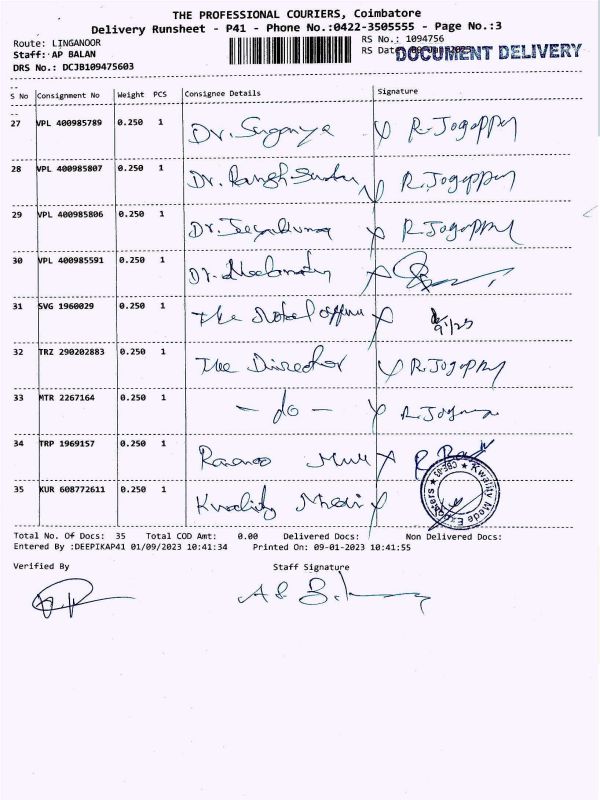 THE PROFESSIONAL COURIERS, Coimbatore
Delivery Runsheet - P41 - Phone No.:0422-3505555 - Page No.:3
Route: LINGANOOR
RS No.: 1094756
Staff: AP BALAN
RS Date
DOCUMENT DELIVERY
DRS No.: DCJB109475603
S No Consignment No Weight PCS Consignee Details Signature
27 VPL 400985789 0.250 1 Dr. Suganya R. Jogappy
28 VPL 400985807 0.250 1 Dr. R. Jogappy
29 VPL 400985806 0.250 1 Dr. Jeyakumar R. Jogappy
30 VPL 400985591 0.250 1 Dr.
31 SVG 1960029 0.250 1 The Nodal Officer 9/1/23
32 TRZ 290202883 0.250 1 The Director R. Jogappy
33 MTR 2267164 0.250 1 - do - R. Jogappy
34 TRP 1969157 0.250 1
35 KUR 608772611 0.250 1 Kwality Medi
Kwality Mode
Total No. Of Docs: 35 Total COD Amt: 0.00 Delivered Docs: Non Delivered Docs:
Entered By :DEEPIKAP41 01/09/2023 10:41:34 Printed On: 09-01-2023 10:41:55
Verified By Staff Signature